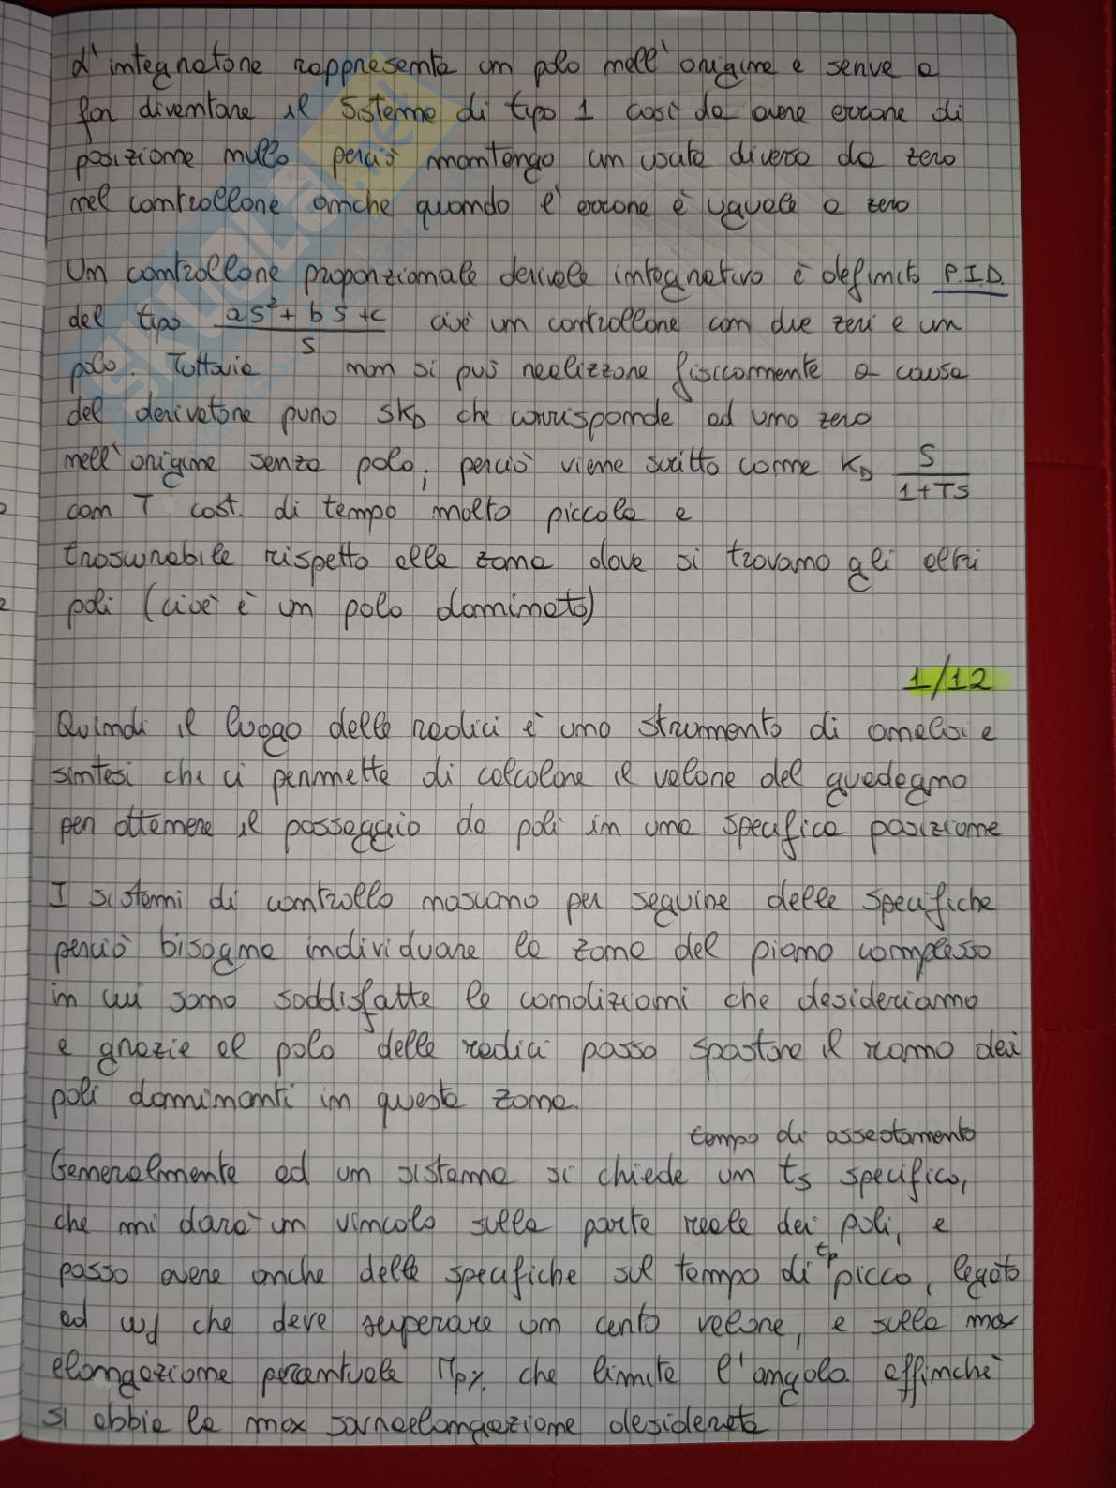 L'integratore rappresenta un polo nell'origine e serve a
far diventare il sistema di tipo 1 così da avere errore di
posizione nullo perciò mantengo un uscita diversa da zero
nel controllore anche quando l'errore è uguale a zero
Un controllore proporzionale derivale integrativo è definito P.I.D.
del tipo (as²+bs+c)/s cioè un controllore con due zeri e un
polo. Tuttavia non si può realizzare fisicamente a causa
del derivatore puro SK_D che corrisponde ad uno zero
nell'origine senza polo, perciò viene scritto come K_D S/(1+TS)
con T cost. di tempo molto piccola e
trascurabile rispetto alla zona dove si trovano gli altri
poli (cioè è un polo dominato)
1/12
Quindi il luogo delle radici è uno strumento di analisi e
sintesi che ci permette di calcolare il valore del guadagno
per ottenere il passaggio da poli in una specifica posizione
I sistemi di controllo nascono per seguire delle specifiche
perciò bisogna individuare la zona del piano complesso
in cui sono soddisfatte le condizioni che desideriamo
e grazie al polo delle radici posso spostare il ramo dei
poli dominanti in questa zona.
tempo di assestamento
Generalmente ad un sistema si chiede un ts specifico,
che mi darà un vincolo sulla parte reale dei poli, e
tp
posso avere anche delle specifiche sul tempo di picco, legato
ad wd che deve superare un certo valore, e sulla max
elongazione percentuale Mp% che limita l'angolo affinchè
si abbia la max sovraelongazione desiderata
SKUOLA